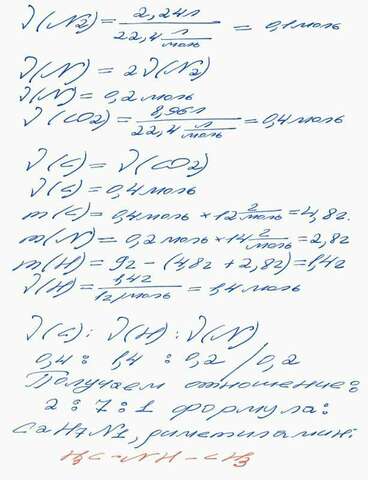 ν(N2) = 2,24л / 22,4 л/моль = 0,1моль
ν(N) = 2ν(N2)
ν(N) = 0,2 моль
ν(CO2) = 8,96л / 22,4 л/моль = 0,4моль
ν(C) = ν(CO2)
ν(C) = 0,4моль
m(C) = 0,4моль × 12 г/моль = 4,8г.
m(N) = 0,2моль × 14 г/моль = 2,8г
m(H) = 9г - (4,8г + 2,8г) = 1,4г
ν(H) = 1,4г / 1г/моль = 1,4 моль
ν(C) : ν(H) : ν(N)
0,4 : 1,4 : 0,2 /0,2
Получаем отношение:
2 : 7 : 1 формула:
C2H7N1, диметиламин:
H3C - NH - CH3